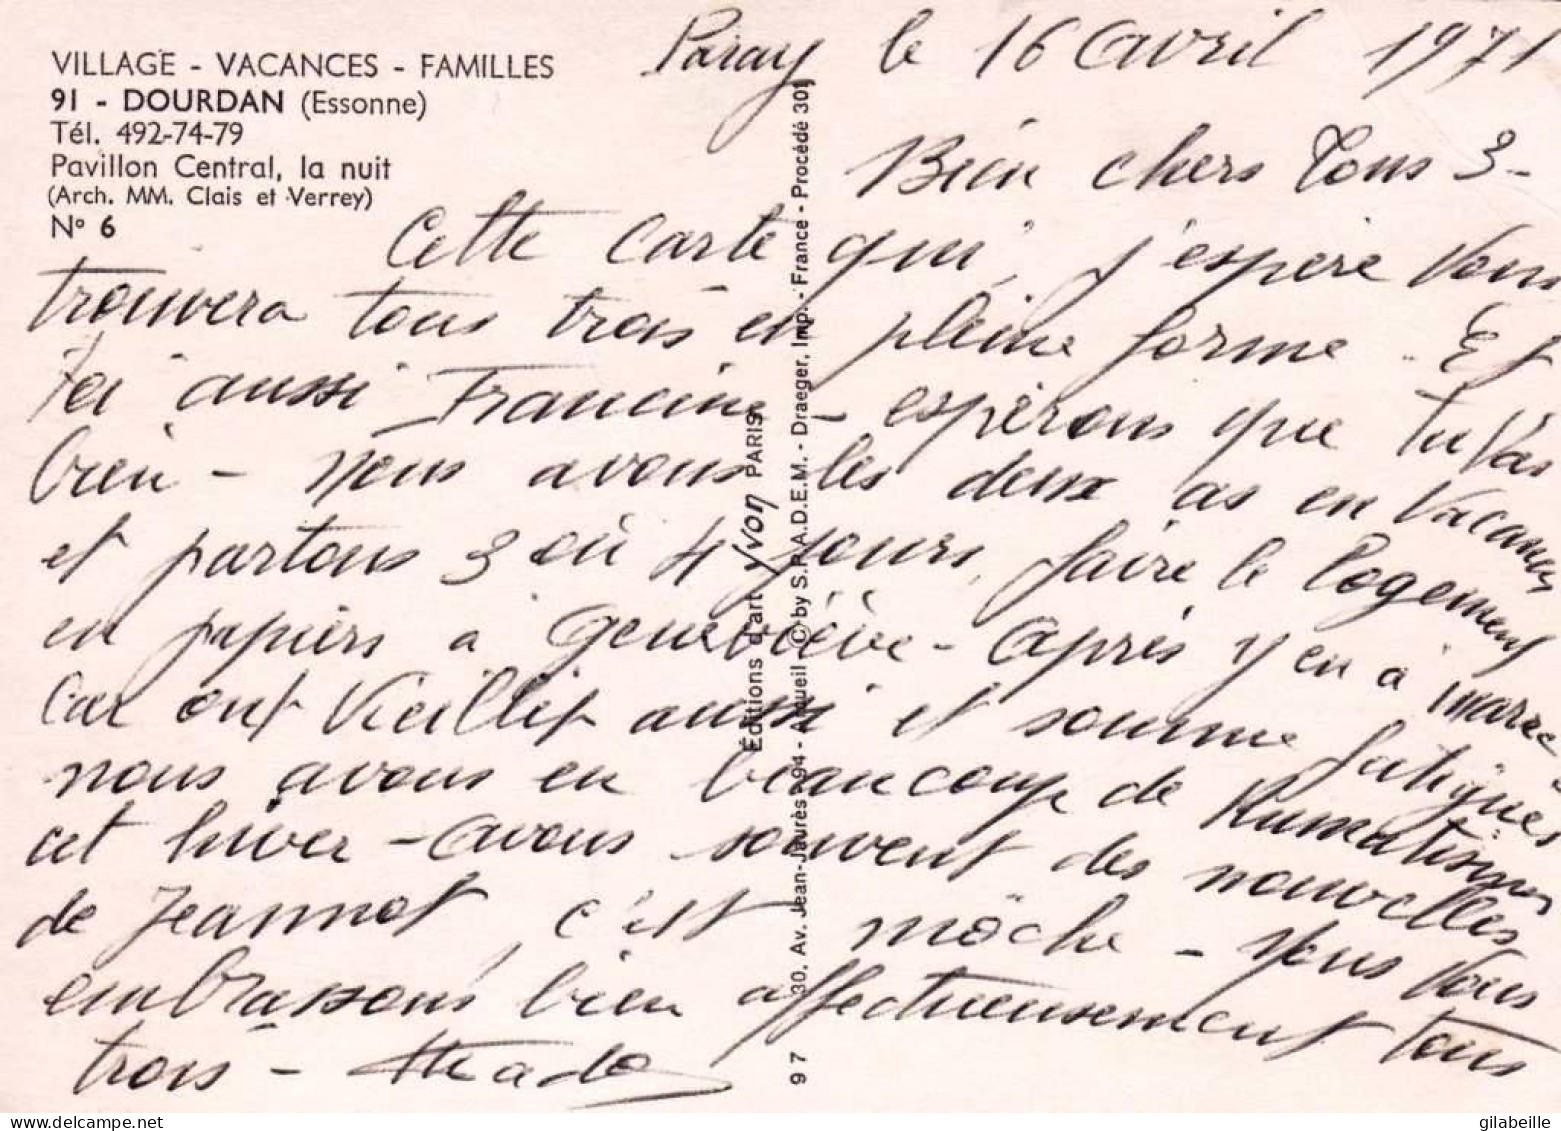 VILLAGE - VACANCES - FAMILLES
91 - DOURDAN (Essonne)
Tél. 492-74-79
Pavillon Central, la nuit
(Arch. MM. Clais et Verrey)
N° 6
Paray le 16 Avril 1971
Bien chers Tous 3-
Cette Carte qui, j'espère Vous
trouvera tous trois en pleine forme. Et
toi aussi Francine - espérons que tu vas
bien - nous avons les deux as en Vacances
et partons 3 où 4 jours, faire le logement
en papiers a Geneviève - Après y en a marre
Car ont Vieillit aussi et somme fatigués
nous avons eu beaucoup de Rumatismes
cet hiver - Avons souvent des nouvelles
de Jeannot, c'est môche - Nous Vous
embrassons bien affectueusement tous
trois -
Éditions d'art Yvon PARIS
97 30, Av. Jean-Jaurès 94 - Arcueil © by S.P.A.D.E.M. - Draeger, Imp. - France - Procédé 301
gilabeille